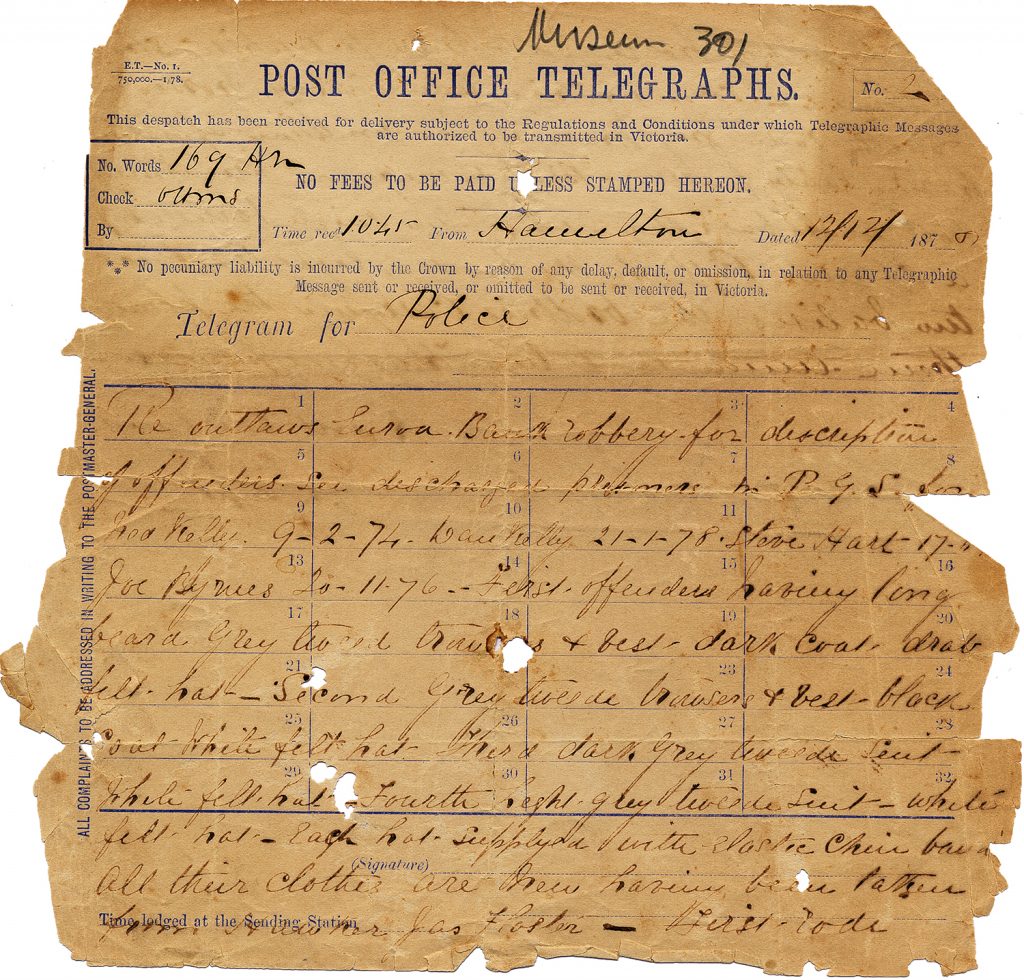 Museum 301
E.T.—No. 1.
750,000.—1/78.
POST OFFICE TELEGRAPHS.
No. 2
This despatch has been received for delivery subject to the Regulations and Conditions under which Telegraphic Messages
are authorized to be transmitted in Victoria.
No. Words 169
Check
By
NO FEES TO BE PAID UNLESS STAMPED HEREON.
Time recd 10.45 From Hamilton Dated 12/12/ 1878
⁂ No pecuniary liability is incurred by the Crown by reason of any delay, default, or omission, in relation to any Telegraphic
Message sent or received, or omitted to be sent or received, in Victoria.
Telegram for Police
ALL COMPLAINTS TO BE ADDRESSED IN WRITING TO THE POSTMASTER-GENERAL.
1 2 3 4
Re outlaws Euroa Bank robbery for description
5 6 7 8
of offenders. See discharged prisoners in P. G. S.
9 10 11
Ned Kelly. 9-2-74. Dan Kelly 21-1-78. Steve Hart 17-
13 14 15 16
Joe Byrnes 20-11-76 - First offenders having long
17 18 19 20
beard Grey tweed trousers & vest dark coat drab
21 23 24
felt hat - Second Grey tweede trousers & vest black
25 26 27 28
Coat White felt hat Third dark Grey tweede suit
29 30 31 32
White felt hat - Fourth light grey tweede suit - white
felt hat - Each hat supplyed with elastic chin band
(Signature)
All their clothes are new having been taken
Time lodged at the Sending Station
from Hawker Jas Gloster - First rode